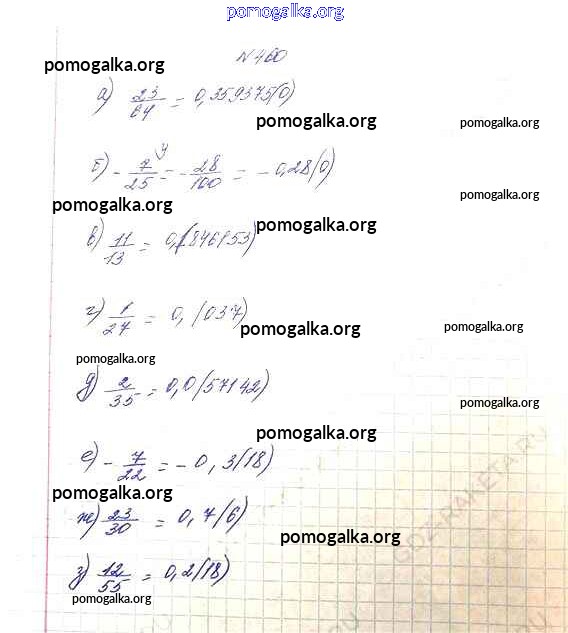 pomogalka.org
N 460
pomogalka.org
а) 23/64 = 0,359375(0)
pomogalka.org
pomogalka.org
б) - 7/25 ^4 = - 28/100 = - 0,28(0)
pomogalka.org
pomogalka.org
pomogalka.org
в) 11/13 = 0,(846153)
г) 1/27 = 0,(037)
pomogalka.org
pomogalka.org
pomogalka.org
д) 2/35 = 0,0(57142)
pomogalka.org
pomogalka.org
е) - 7/22 = - 0,3(18)
pomogalka.org
ж) 23/30 = 0,7(6)
pomogalka.org
GDZ-RAKETA.RU
з) 12/55 = 0,2(18)
pomogalka.org